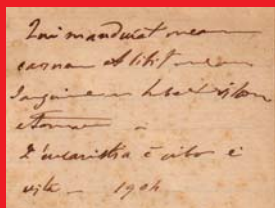 Qui manducat meam
carnem et bibit meum
sanguinem habet vitam
eternam
L'eucaristia è cibo e
vita – 1904